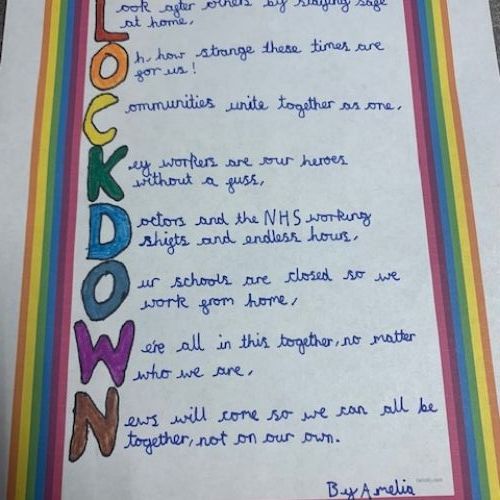 Look after others by staying safe
at home,
Oh, how strange these times are
for us!
Communities unite together as one,
Key workers are our heroes
without a fuss,
Doctors and the NHS working
shifts and endless hours,
Our schools are closed so we
work from home,
Were all in this together, no matter
who we are,
News will come so we can all be
together, not on our own.
By Amelia